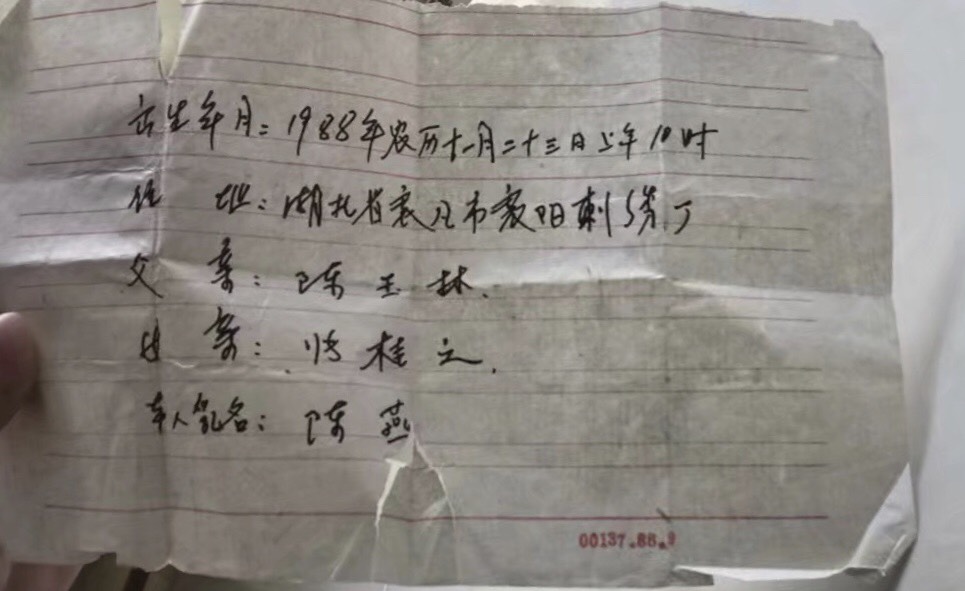 出生年月：1988年农历十一月二十三日上午10时
住 址：湖北省襄凡市襄阳刺绣厂
父 亲：陈玉林.
母 亲：桂之.
本人乳名：陈燕
00137.88.9